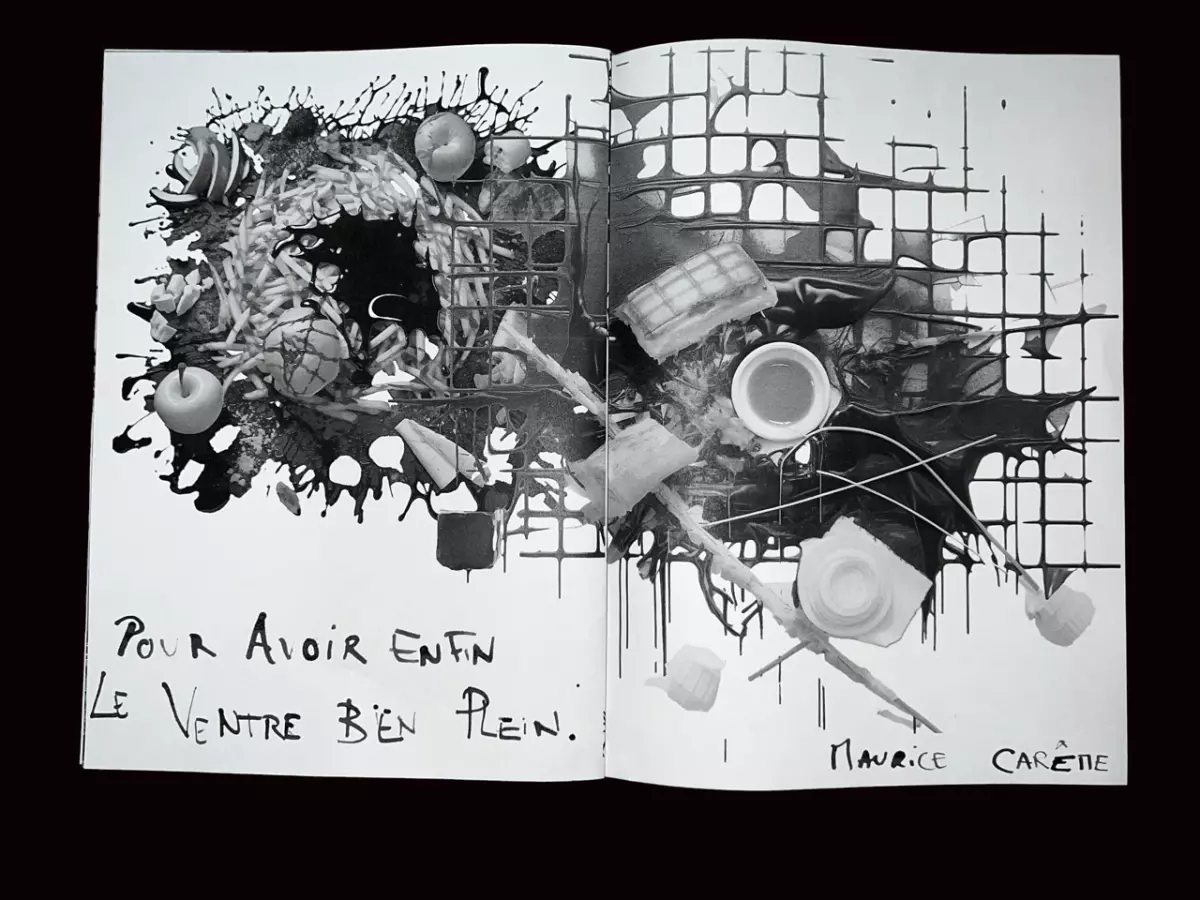 POUR AVOIR ENFIN
LE VENTRE BIEN PLEIN.
MAURICE CARÊME